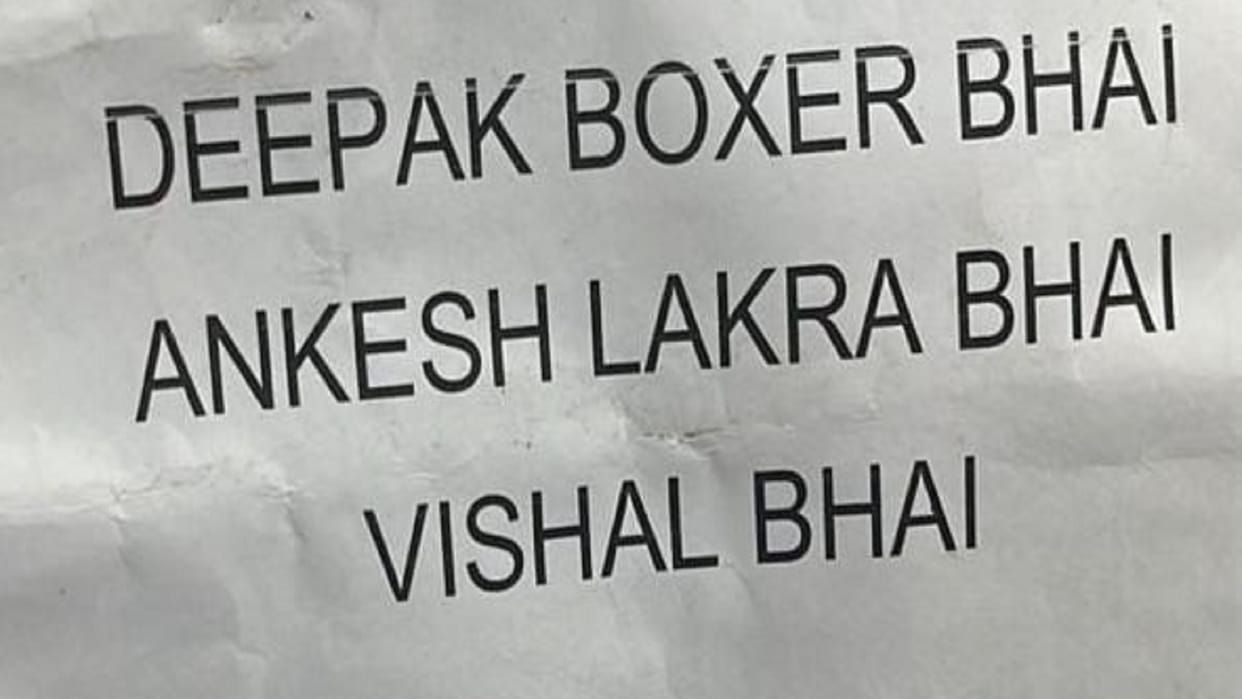 DEEPAK BOXER BHAI
ANKESH LAKRA BHAI
VISHAL BHAI